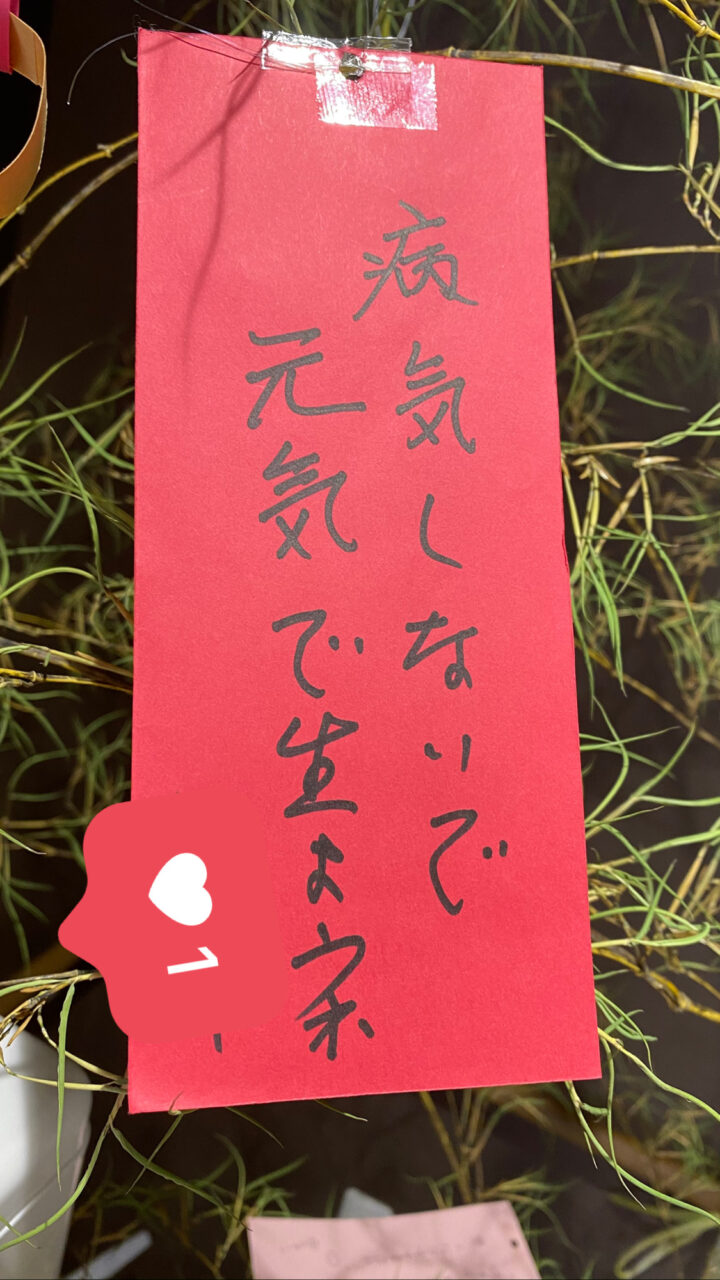 病気しないで
元気で生
1